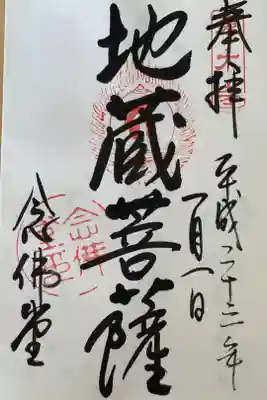 奉拝
平成二十二年
一月一日
地蔵菩薩
念佛堂